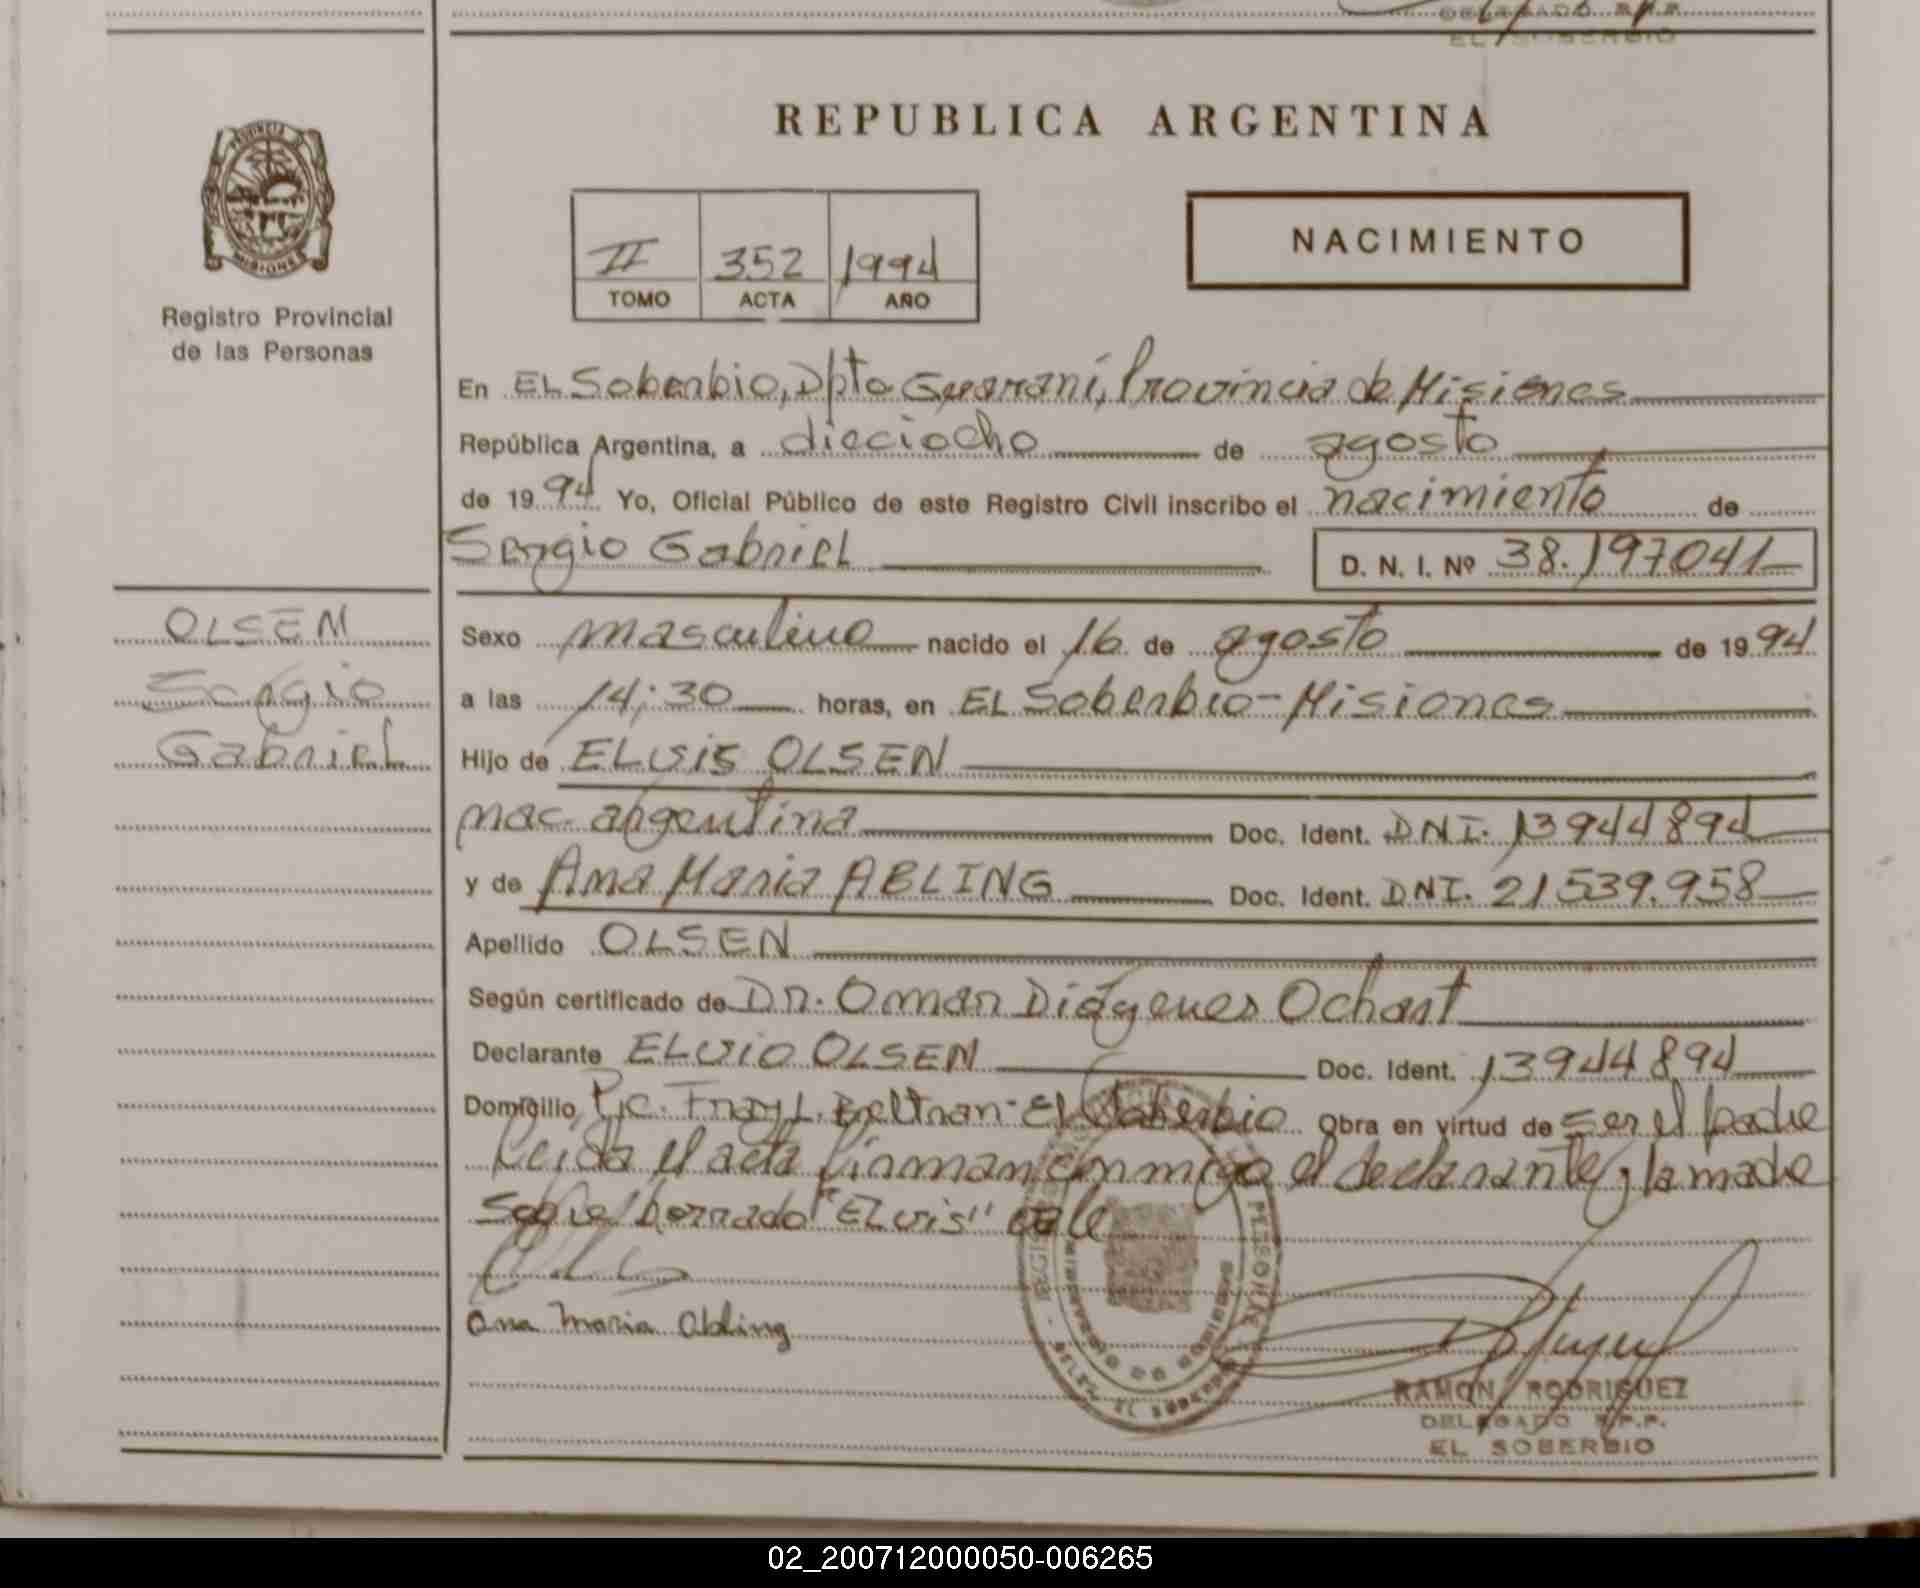 EL SOBERBIO
REPUBLICA ARGENTINA
PROVINCIA
MISIONES
Registro Provincial
de las Personas
II 352 1994
TOMO ACTA AÑO
NACIMIENTO
En EL Soberbio, Dpto Guaraní, Provincia de Misiones
República Argentina, a dieciocho de agosto
de 1994 Yo, Oficial Público de este Registro Civil inscribo el nacimiento de
Sergio Gabriel D. N. I. Nº 38.197041
OLSEN
Sergio
Gabriel
Sexo masculino nacido el 16 de agosto de 1994
a las 14:30 horas, en EL Soberbio - Misiones
Hijo de ELVIS OLSEN
nac. argentina Doc. Ident. DNI. 13944894
y de Ana Maria ABLING Doc. Ident. DNI. 21539.958
Apellido OLSEN
Según certificado de Dr. Omar Diógenes Ochart
Declarante ELVIO OLSEN Doc. Ident. 13944894
Domicilio Pje. Fray L. Beltran - El Soberbio Obra en virtud de ser el padre
Leída el acta firman conmigo el declarante y la madre
Sobre borrado "ELvis" vale
Ana Maria Abling
RAMON RODRIGUEZ
DELEGADO R.P.P.
EL SOBERBIO
02_200712000050-006265